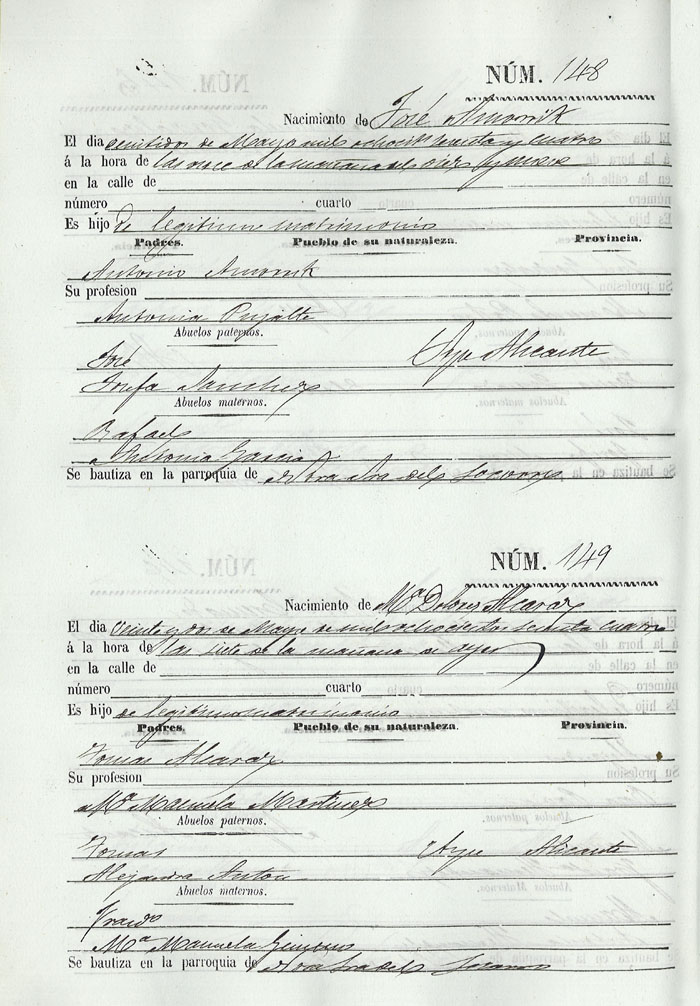 NÚM. 148
Nacimiento de José Amorrik
El dia veintidos de Mayo mil ochocts sesenta y cuatro
á la hora de las once de la mañana del dies y nueve
en la calle de
número cuarto
Es hijo de legitimo matrimonio
Padres. Pueblo de su naturaleza. Provincia.
Antonio Amorrik
Su profesion
Antonia Pujalte
Abuelos paternos.
José Aspe Alicante
Josefa Sanchez
Abuelos maternos.
Rafael
Antonia Garcia
Se bautiza en la parroquia de Ntra Sra del Socorro
NÚM. 149
Nacimiento de Mª Dolores Alcaráz
El dia Veinte y dos de Mayo de mil ochocientos sesenta cuatro
á la hora de las siete de la mañana de ayer
en la calle de
número cuarto
Es hijo de legitimo matrimonio
Padres. Pueblo de su naturaleza. Provincia.
Tomas Alcaraz
Su profesion
Mª Manuela Martinez
Abuelos paternos.
Tomas Aspe Alicante
Alejandra Anton
Abuelos maternos.
Mª Manuela Gimeno
Se bautiza en la parroquia de Ntra Sra del Socorro